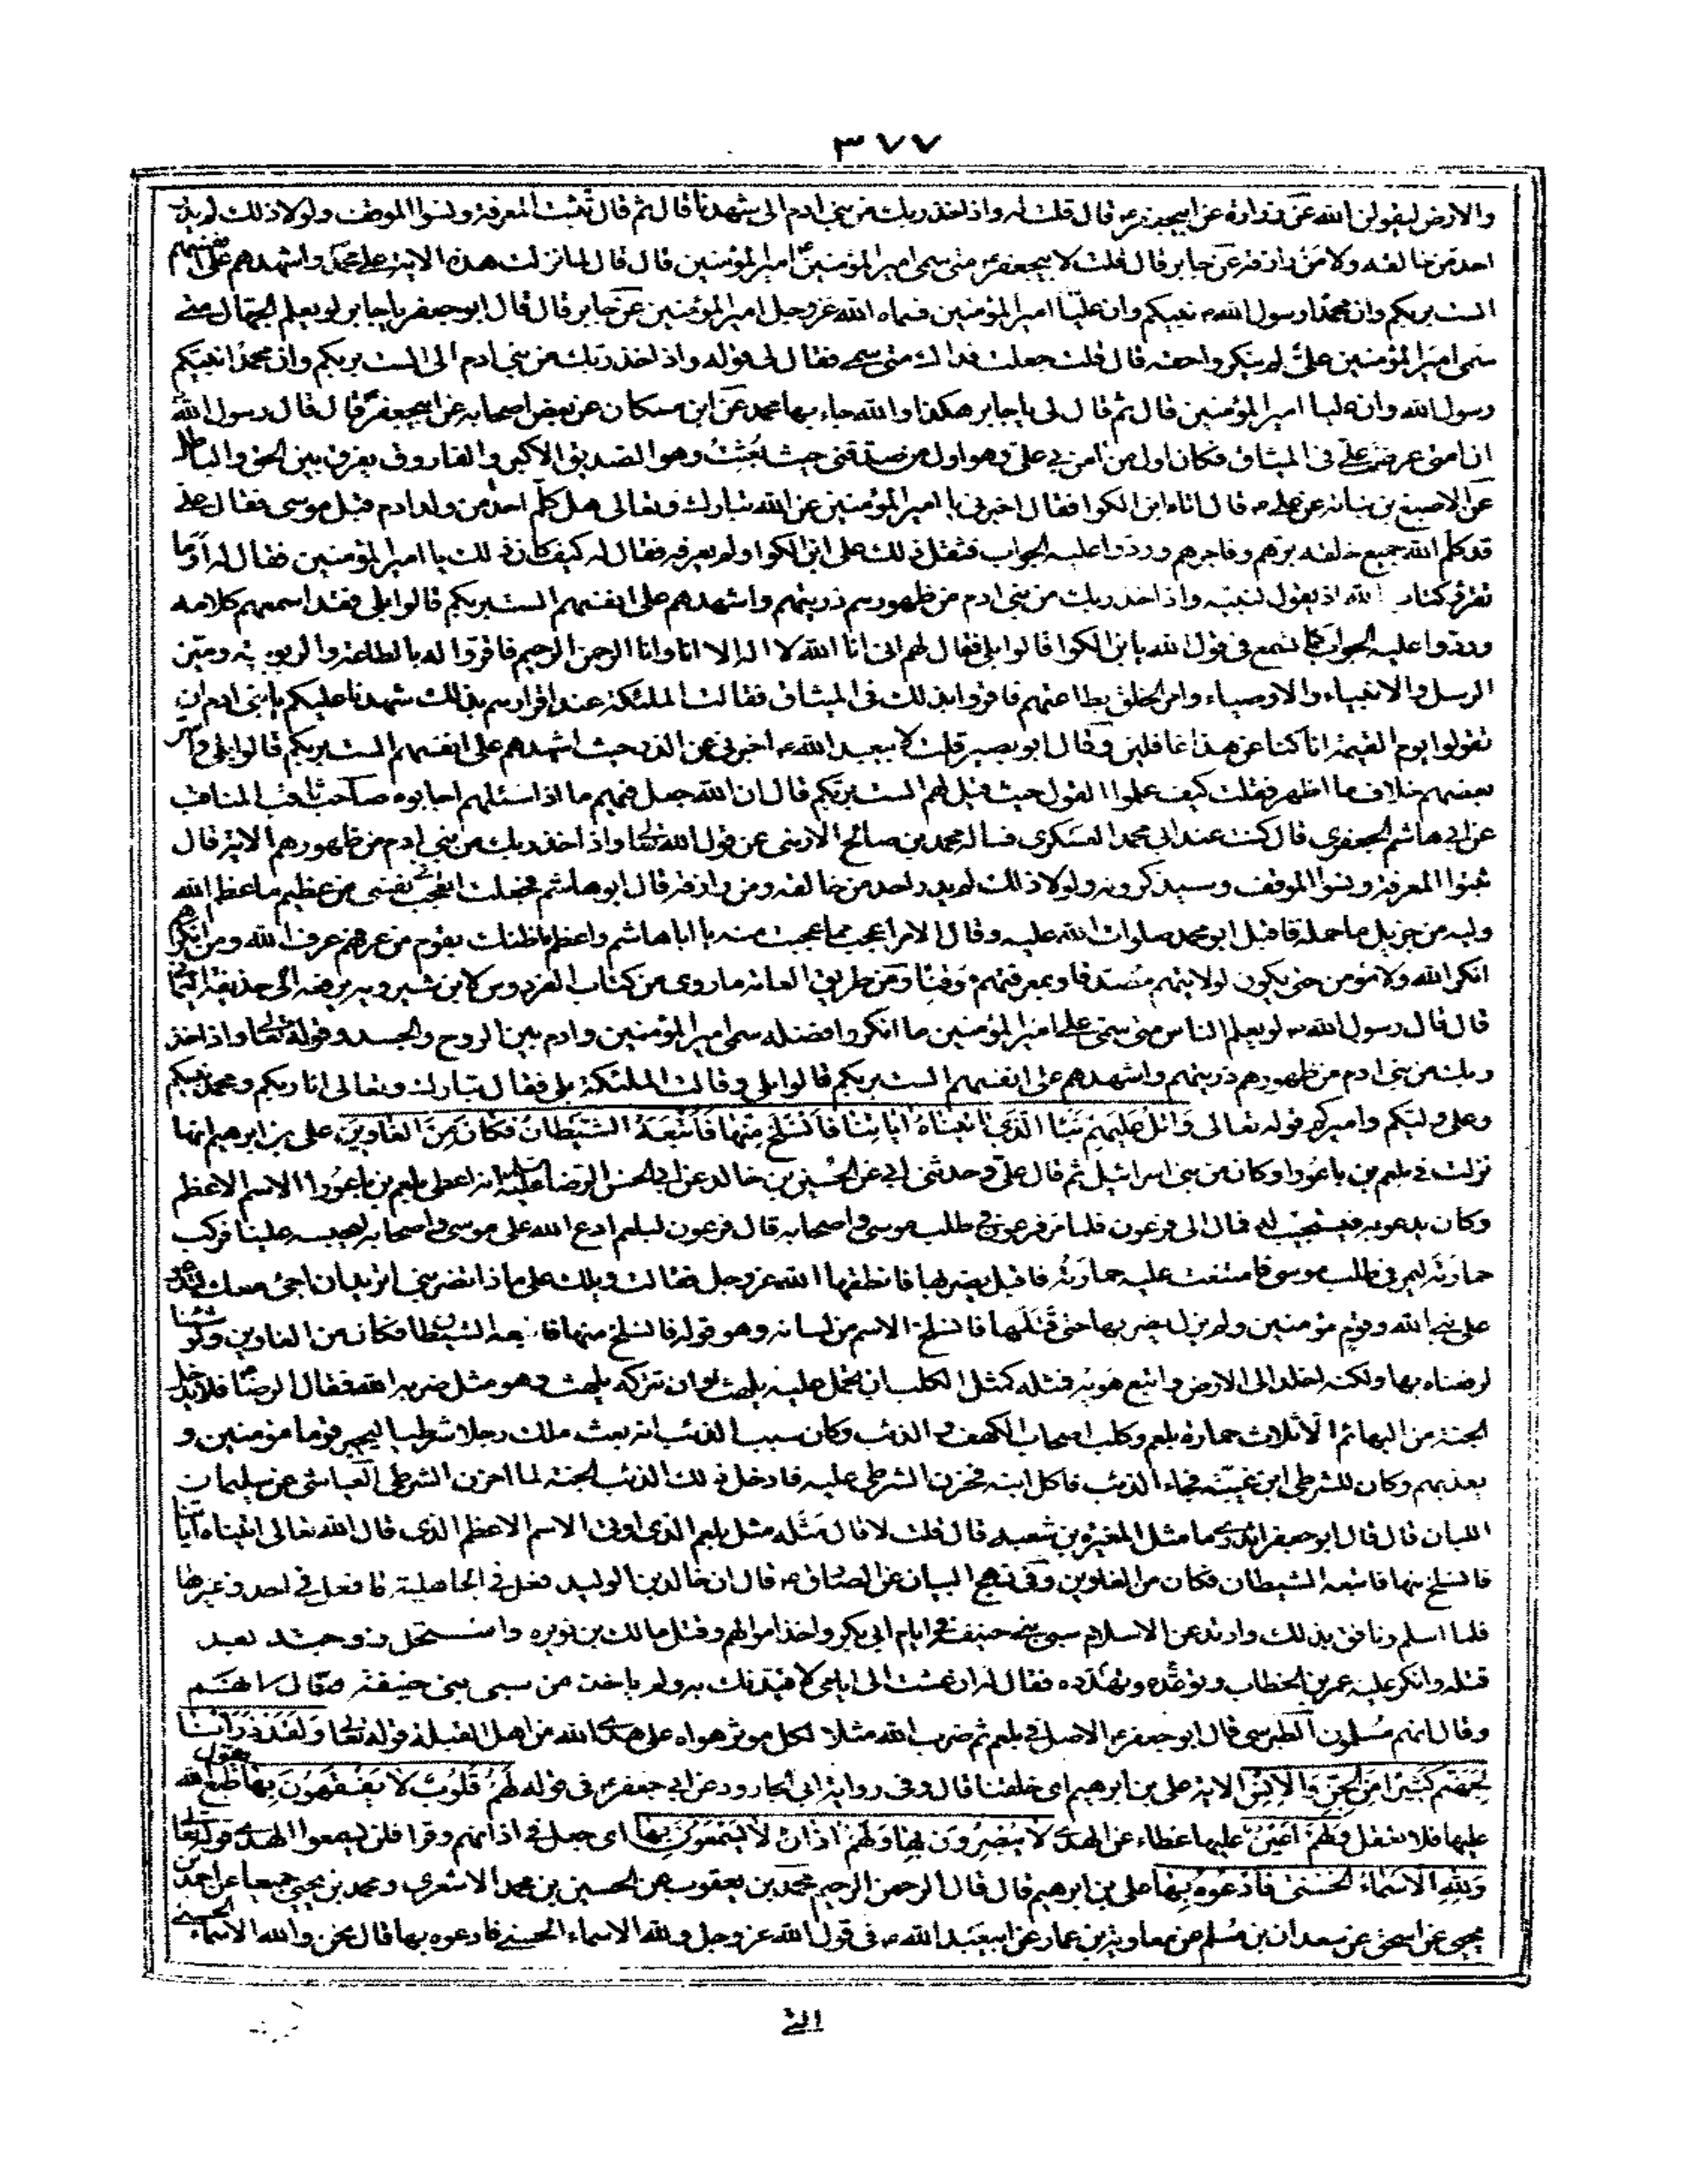 ٣٧٧
والارض ليقولن الله عن زرارة عن ابيجعفر ع قال قلت له واذ اخذ ربك من بنى ادم الى شهدنا قال ثم قال تثبت المعرفة ونسوا الموقف ولولا ذلك لم يدر
احد من خالقه ولا من رازقه عن جابر قال قلت لابيجعفر ع متى سمى امير المؤمنين امير المؤمنين قال قال لما نزلت هذه الاية على محمد واشهدهم على انفسهم
الست بربكم وان محمدا رسول الله نبيكم وان عليا امير المؤمنين فسماه الله عز وجل امير المؤمنين عن جابر قال قال ابو جعفر يا جابر لو يعلم الجهال متى
سمى امير المؤمنين على لم ينكروا حقه قال قلت جعلت فداك متى سمى فقال لى قوله واذ اخذ ربك من بنى ادم الى الست بربكم وان محمدا نبيكم
رسول الله وان عليا امير المؤمنين قال ثم قال لى يا جابر هكذا والله جاء بها محمد عن ابن مسكان عن بعض اصحابه عن ابيجعفر قال قال رسول الله
ان امتى عرضت على فى الميثاق فكان اول من امن بى على وهو اول من صدقنى حيث بعثت وهو الصديق الاكبر والفاروق يفرق بين الحق والباطل
عن الاصبغ بن نباتة عن على ع قال اتاه ابن الكوا فقال اخبرنى يا امير المؤمنين عن الله تبارك وتعالى هل كلم احدا من ولد ادم قبل موسى فقال على
قد كلم الله جميع خلقه برهم وفاجرهم وردوا عليه الجواب فثقل ذلك على ابن الكوا ولم يعرفه فقال له كيف كان ذلك يا امير المؤمنين فقال له اوما
تقرء كتاب الله اذ يقول لنبيه واذ اخذ ربك من بنى ادم من ظهورهم ذريتهم واشهدهم على انفسهم الست بربكم قالوا بلى فقد اسمعهم كلامه
وردوا عليه الجواب كما تسمع فى قول الله يا بن الكوا قالوا بلى فقال لهم انى انا الله لا اله الا انا وانا الرحمن الرحيم فاقروا له بالطاعة والربوبية وميز
الرسل والانبياء والاوصياء وامر الخلق بطاعتهم فاقروا بذلك فى الميثاق فقالت الملئكة عند اقرارهم بذلك شهدنا عليكم يا بنى ادم ان
تقولوا يوم القيمة انا كنا عن هذا غافلين وقال ابو بصير قلت لابيعبد الله ع اخبرنى عن الذر حيث اشهدهم على انفسهم الست بربكم قالوا بلى واسر
بعضهم خلاف ما اظهر فقلت كيف علموا القول حيث قيل لهم الست بربكم قال ان الله جعل فيهم ما اذا سئلهم اجابوه صاحب ثاقب المناقب
عن ابى هاشم الجعفرى قال كنت عند ابى محمد العسكرى فساله محمد بن صالح الارمنى عن قول الله تعالى واذ اخذ ربك من بنى ادم من ظهورهم الاية قال
ثبتوا المعرفة ونسوا الموقف وسيذكرونه ولولا ذلك لم يدر احد من خالقه ومن رازقه قال ابو هاشم فجعلت اتعجب فى نفسى من عظيم ما اعظم الله
وليه من جزيل ما حمله فاقبل ابو محمد صلوات الله عليه وقال الامر اعجب مما عجبت منه يا ابا هاشم واعظم ما ظنك بقوم من عرفهم عرف الله ومن انكرهم
انكر الله ولا مؤمن حتى يكون لولايتهم مصدقا وبمعرفتهم موقنا ومن طريق العامة ما روى من كتاب الفردوس لابن شيرويه يرفعه الى حذيفة اليمانى
قال قال رسول الله لو يعلم الناس متى سمى على امير المؤمنين ما انكروا فضله سمى امير المؤمنين وادم بين الروح والجسد وقوله تعالى واذ اخذ
ربك من بنى ادم من ظهورهم ذريتهم واشهدهم على انفسهم الست بربكم قالوا بلى وقالت الملئكة بلى فقال تبارك وتعالى انا ربكم ومحمد نبيكم
وعلى وليكم واميركم قوله تعالى وَاتْلُ عَلَيْهِمْ نَبَأَ الَّذِى اتَيْنَاهُ ايَاتِنَا فَانْسَلَخَ مِنْهَا فَأَتْبَعَهُ الشَّيْطَانُ فَكَانَ مِنَ الْغَاوِينَ على بن ابرهيم انها
نزلت فى بلعم بن باعورا وكان من بنى اسرائيل ثم قال على وحدثنى ابى عن الحسين بن خالد عن ابى الحسن الرضا عليه السلام انه اعطى بلعم بن باعورا الاسم الاعظم
وكان يدعو به فيستجيب له فمال الى فرعون فلما مر فرعون فى طلب موسى واصحابه قال فرعون لبلعم ادع الله على موسى واصحابه ليحبسه علينا فركب
حمارته ليمر فى طلب موسى فامتنعت عليه حمارته فاقبل يضربها فانطقها الله عز وجل فقالت ويلك على ماذا تضربنى اتريد ان اجئ معك لتدعو
على نبى الله وقوم مؤمنين ولم يزل يضربها حتى قتلها فانسلخ الاسم من لسانه وهو قوله فانسلخ منها فاتبعه الشيطان فكان من الغاوين ولو شئنا
لرفعناه بها ولكنه اخلد الى الارض واتبع هويه فمثله كمثل الكلب ان تحمل عليه يلهث او ان تتركه يلهث وهو مثل ضربه الله فقال الرضا فلا يدخل
الجنة من البهائم الا ثلاث حمارة بلعم وكلب اصحاب الكهف والذئب وكان سبب الذئب انه بعث ملك رجلا شرطيا ليحشر قوما مؤمنين و
يعذبهم وكان للشرطى ابن يحبه فجاء الذئب فاكل ابنه فحزن الشرطى عليه فادخل ذلك الذئب الجنة لما احزن الشرطى العياشى عن سليمان
اللبان قال قال ابو جعفر اتدرى ما مثل المغيرة بن شعبه قال قلت لا قال مثله مثل بلعم الذى اوتى الاسم الاعظم الذى قال الله تعالى اتيناه اياتنا
فانسلخ منها فاتبعه الشيطان فكان من الغاوين وفى نهج البيان عن الصادق ع قال ان خالد بن الوليد فعل فى الجاهلية ما فعل فى احد وغيرها
فلما اسلم ونافق بذلك وارتد عن الاسلام سبى بنى حنيفة فى ايام ابى بكر واخذ اموالهم وقتل مالك بن نويره واستحل زوجته بعد
قتله وانكر عليه عمر بن الخطاب وتوعده وتهدده فقال له ان عشت الى ايامى لاقيدنك به ولم ياخذ من سبى بنى حنيفة
وقال انهم مسلمون الطبرسى قال ابو جعفر ع الاصل فى بلعم ثم ضرب الله مثلا لكل موثر هواه على هدى الله من اهل القبلة قوله تعالى وَلَقَدْ ذَرَأْنَا
لِجَهَنَّمَ كَثِيرًا مِنَ الْجِنِّ وَالْاِنْسِ الاية على بن ابرهيم اى خلقنا قال وفى رواية ابى الجارود عن ابى جعفر ع فى قوله لَهُمْ قُلُوبٌ لَا يَفْقَهُونَ بِهَا يقول طبع الله
عليها فلا تعقل وَلَهُمْ اَعْيُنٌ عليها غطاء عن الهدى لَا يُبْصِرُونَ بِهَا وَلَهُمْ اذَانٌ لَا يَسْمَعُونَ بِهَا اى جعل فى اذانهم وقرا فلن يسمعوا الهدى قوله تعالى
وَلِلّٰهِ الْاَسْمَاءُ الْحُسْنٰى فَادْعُوهُ بِهَا على بن ابرهيم قال قال الرحمن الرحيم محمد بن يعقوب عن الحسين بن محمد الاشعرى ومحمد بن يحيى جميعا عن احمد بن
يحيى عن اسحق عن سعدان بن مسلم عن معاوية بن عمار عن ابيعبد الله ع فى قول الله عز وجل ولله الاسماء الحسنى فادعوه بها قال نحن والله الاسماء الحسنى
التى